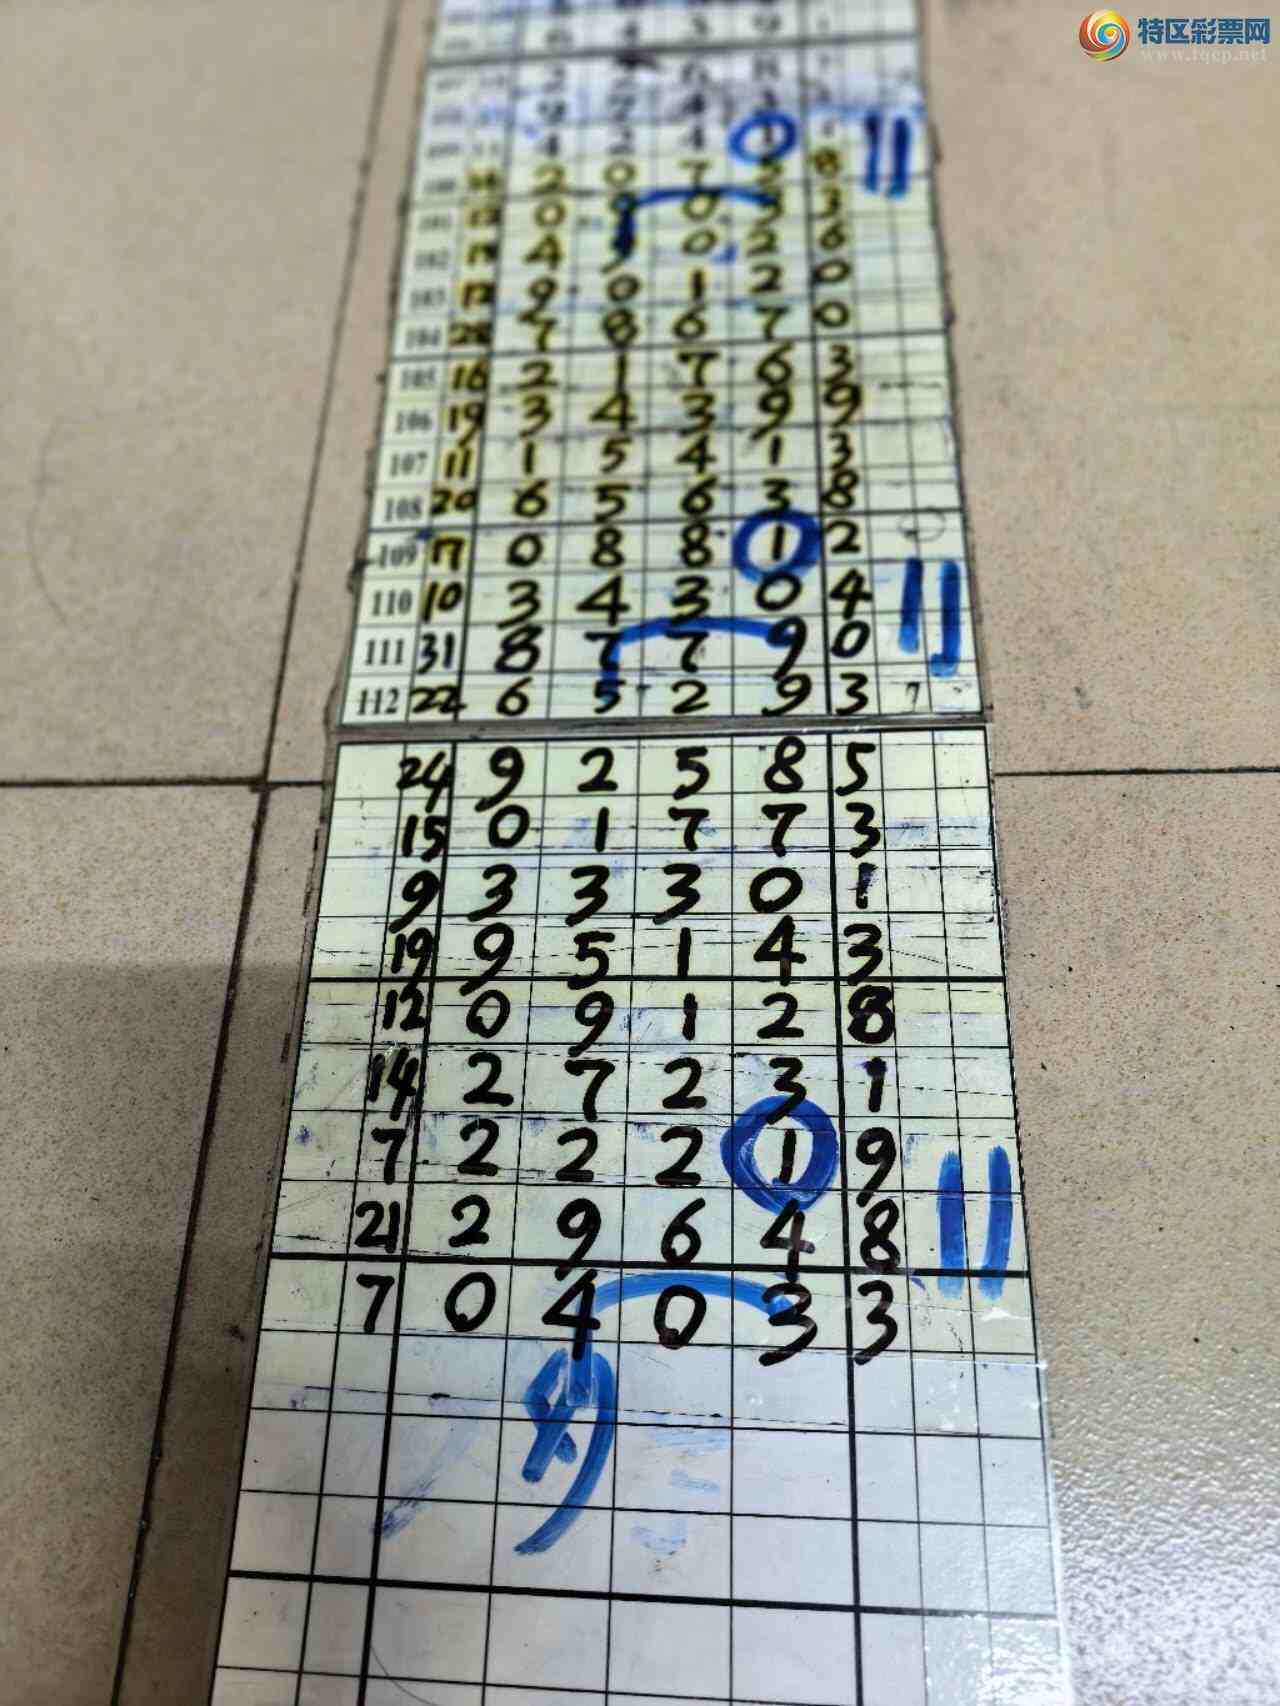 特区彩票网
www.tqcp.net
6 4 3 9
4 2 4 1
2 0 7 2 8
0 9 0 3 3
102 4 0 2 6
103 12 9 0 1 2 0
104 28 7 8 6 7 0
105 16 2 1 7 6 3
106 19 3 4 3 9 9
107 11 1 5 4 1 3
108 20 6 5 6 3 8
109 17 0 8 8 1 2
110 10 3 4 3 0 4
111 31 8 7 7 9 0
112 22 6 5 2 9 3 7
24 9 2 5 8 5
15 0 1 7 7 3
9 3 3 3 0 1
19 9 5 1 4 3
12 0 9 1 2 8
14 2 7 2 3 1
7 2 2 2 1 9
21 2 9 6 4 8
7 0 4 0 3 3